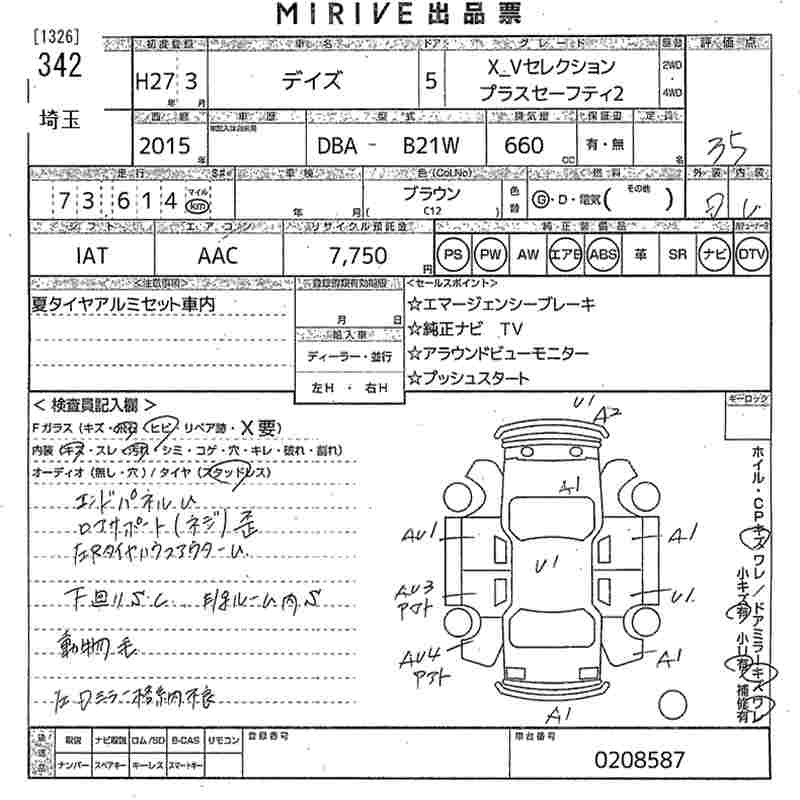 MIRIVE 出品票
[1326]
342
埼玉
初度登録 車名 ドア グレード 駆動 評価点
H27 3
年 月
デイズ
5
X_Vセレクション
プラスセーフティ2
2WD
・
4WD
西暦 車歴 型式 排気量 保証書 定員
2015 年
DBA - B21W
660 CC
有・無
名
35
走行 S# 車検 色(Col.No) 燃料 外装 内装
73,614 マイル km
年 月
ブラウン
( C12 )
色替
G・D・電気( その他 )
D
シフト エアコン リサイクル預託金 純正装備品
IAT
AAC
7,750 円
PS PW AW エアB ABS 革 SR ナビ DTV
<注意事項>
夏タイヤアルミセット車内
登録書類有効期限
月 日
輸入車
ディーラー・並行
左H ・ 右H
<セールスポイント>
☆エマージェンシーブレーキ
☆純正ナビ TV
☆アラウンドビューモニター
☆プッシュスタート
キーロック
< 検査員記入欄 >
Fガラス(キズ・飛石・ヒビ・リペア跡・X要)
内装(キズ・スレ・汚れ・シミ・コゲ・穴・キレ・破れ・割れ)
オーディオ(無し・穴)/タイヤ(スタッドレス)
エンドパネルU
ロアサポート(ネジ)歪
左RタイヤハウスアウターU
下回りS.C
動物毛
左Dミラー格納不良
U1
A2
A1
AU1
A1
U1
AU3
アト
U1
AU4
アト
A1
A1
ホイル・CPキズ ワレ/ドアミラーキズ ワレ
小キズ有 小U有 補修有
後送品
取説 ナビ取説 ロム/SD B-CAS リモコン
ナンバー スペアキー キーレス スマートキー
登録番号
車台番号
0208587